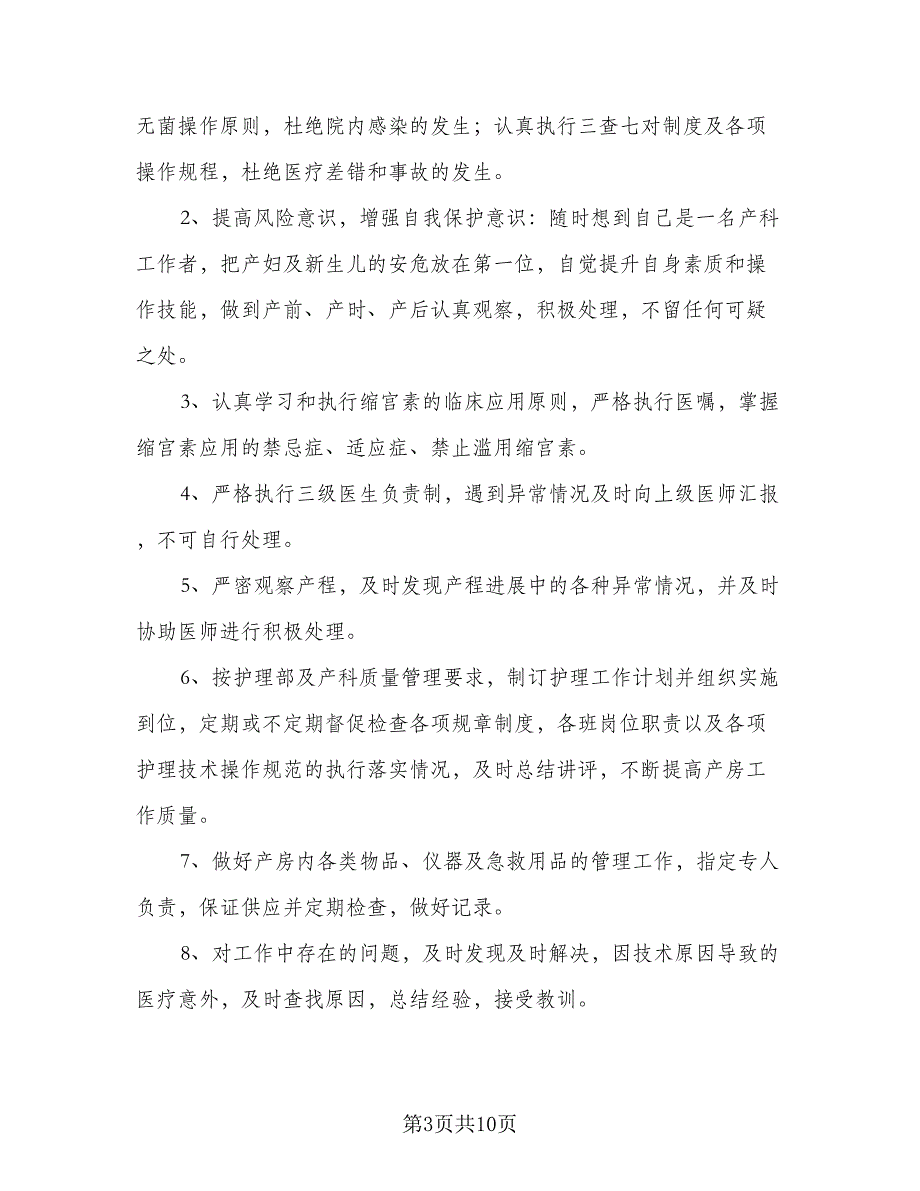 无菌操作原则，杜绝院内感染的发生；认真执行三查七对制度及各项
操作规程，杜绝医疗差错和事故的发生。
2、提高风险意识，增强自我保护意识：随时想到自己是一名产科
工作者，把产妇及新生儿的安危放在第一位，自觉提升自身素质和操
作技能，做到产前、产时、产后认真观察，积极处理，不留任何可疑
之处。
3、认真学习和执行缩宫素的临床应用原则，严格执行医嘱，掌握
缩宫素应用的禁忌症、适应症、禁止滥用缩宫素。
4、严格执行三级医生负责制，遇到异常情况及时向上级医师汇报
，不可自行处理。
5、严密观察产程，及时发现产程进展中的各种异常情况，并及时
协助医师进行积极处理。
6、按护理部及产科质量管理要求，制订护理工作计划并组织实施
到位，定期或不定期督促检查各项规章制度，各班岗位职责以及各项
护理技术操作规范的执行落实情况，及时总结讲评，不断提高产房工
作质量。
7、做好产房内各类物品、仪器及急救用品的管理工作，指定专人
负责，保证供应并定期检查，做好记录。
8、对工作中存在的问题，及时发现及时解决，因技术原因导致的
医疗意外，及时查找原因，总结经验，接受教训。
第3页共10页